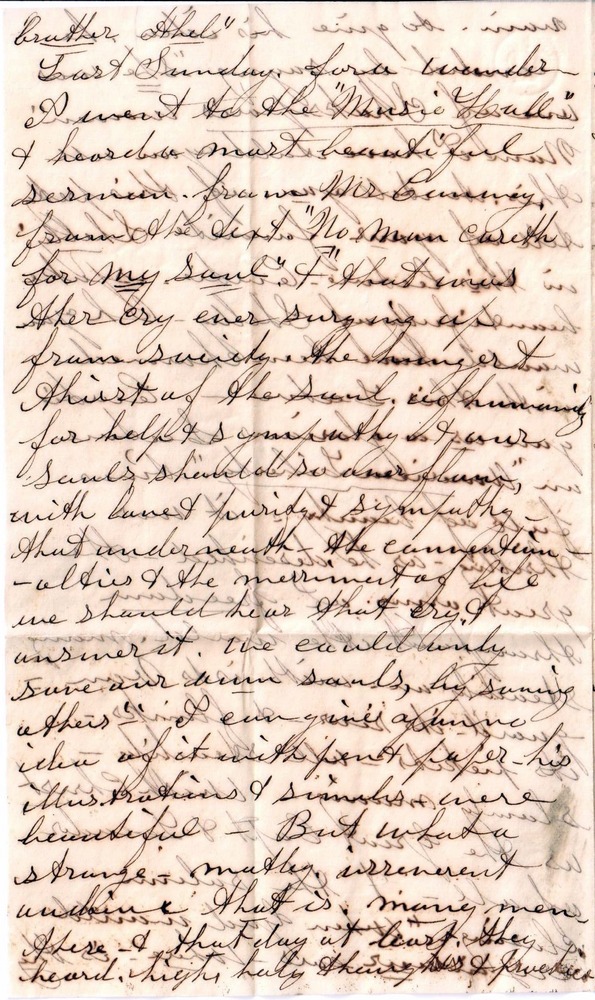 brother Abel"
Last Sunday, for a wonder
I went to the "Music Hall"
& heard a most beautiful
sermon from Mr Conway,
from the text "No man careth
for my soul." & "that was
the cry ever surging up
from society. the hunger &
thirst of the soul of humanity
for help & sympathy & our
souls should so overflow,
with love & purity & sympathy
that underneath - the convention-
-alties & the merriment of life
we should hear that cry, &
answer it. We could only
save our own souls, by saving
others" - I can give you no
idea of it with pen & paper - his
illustrations & similes were
beautiful - But what a
strange - motley, irreverent
audience that is. many men
there - & that day at least, they
heard, high, holy thoughts &